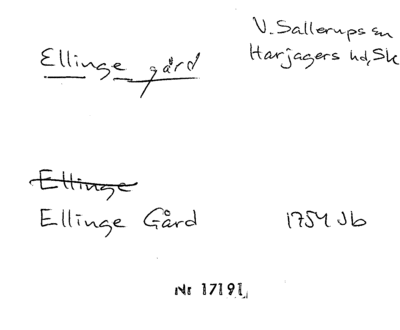 V. Sallerups sn
Ellinge gård
Harjagers hd, Sk
Ellinge
Ellinge Gård 1754 Jb
Nr 17191